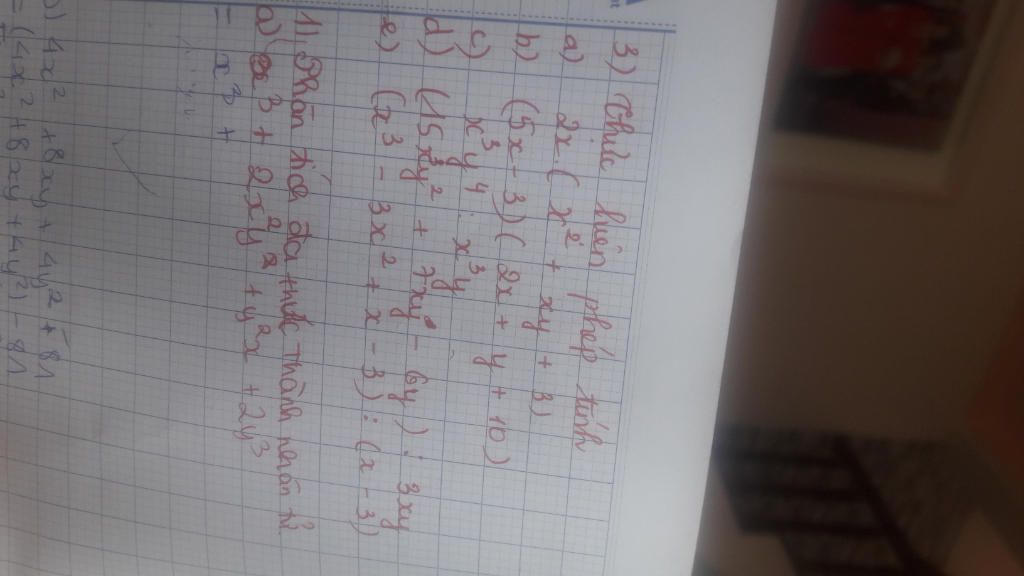 3) Thực hiện phép tính
a) 2x.(x² + xy + 3)
b) (5x - 3)(2x + y + 10)
c) x³y⁴ : x³y
d) (15x³y² + 7xy - 6y) : 3xy
e) (x³ - 3x² + x - 3) : (x - 3)
1) Phân tích đa thức thành nhân tử
a) x³ + 2x²y + y²x + 2y³
= x³ +
b) 4x² + 8xy + 4y² - 81
= (4x² + 8xy + 4y²) - 81